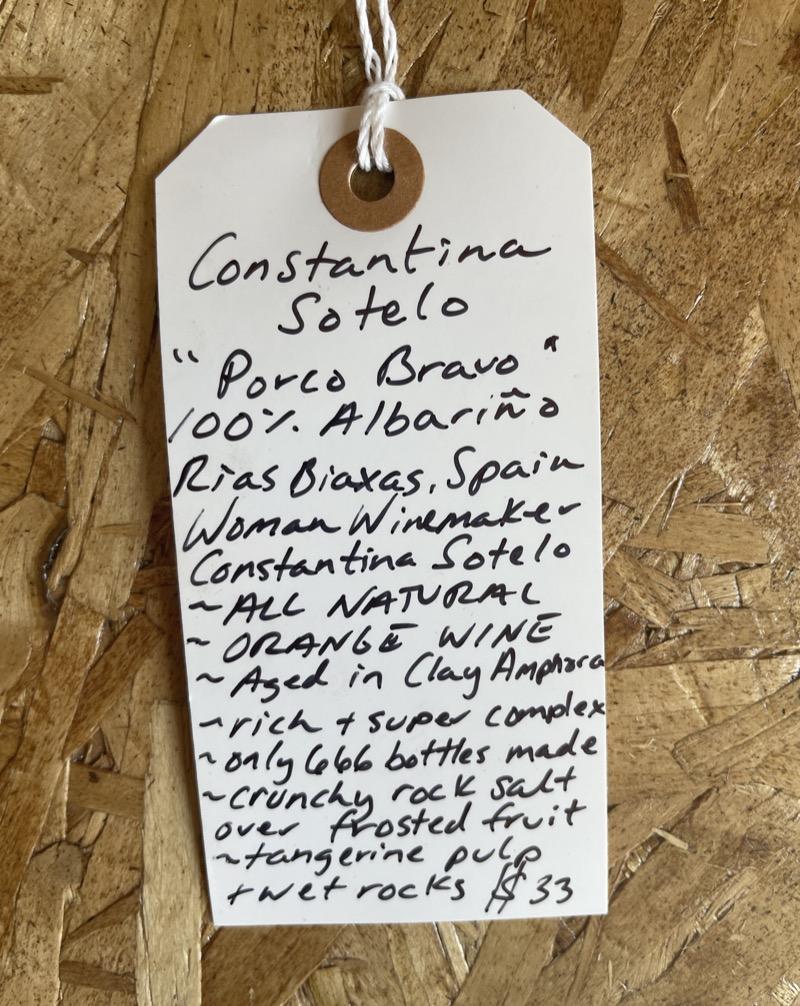 Constantina
Sotelo
"Porco Bravo"
100% Albariño
Rias Biaxas, Spain
Woman Winemaker
Constantina Sotelo
~ALL NATURAL
~ORANGE WINE
~Aged in Clay Amphora
~rich + super complex
~only 666 bottles made
~crunchy rock salt
over frosted fruit
~tangerine pulp
+wet rocks $33